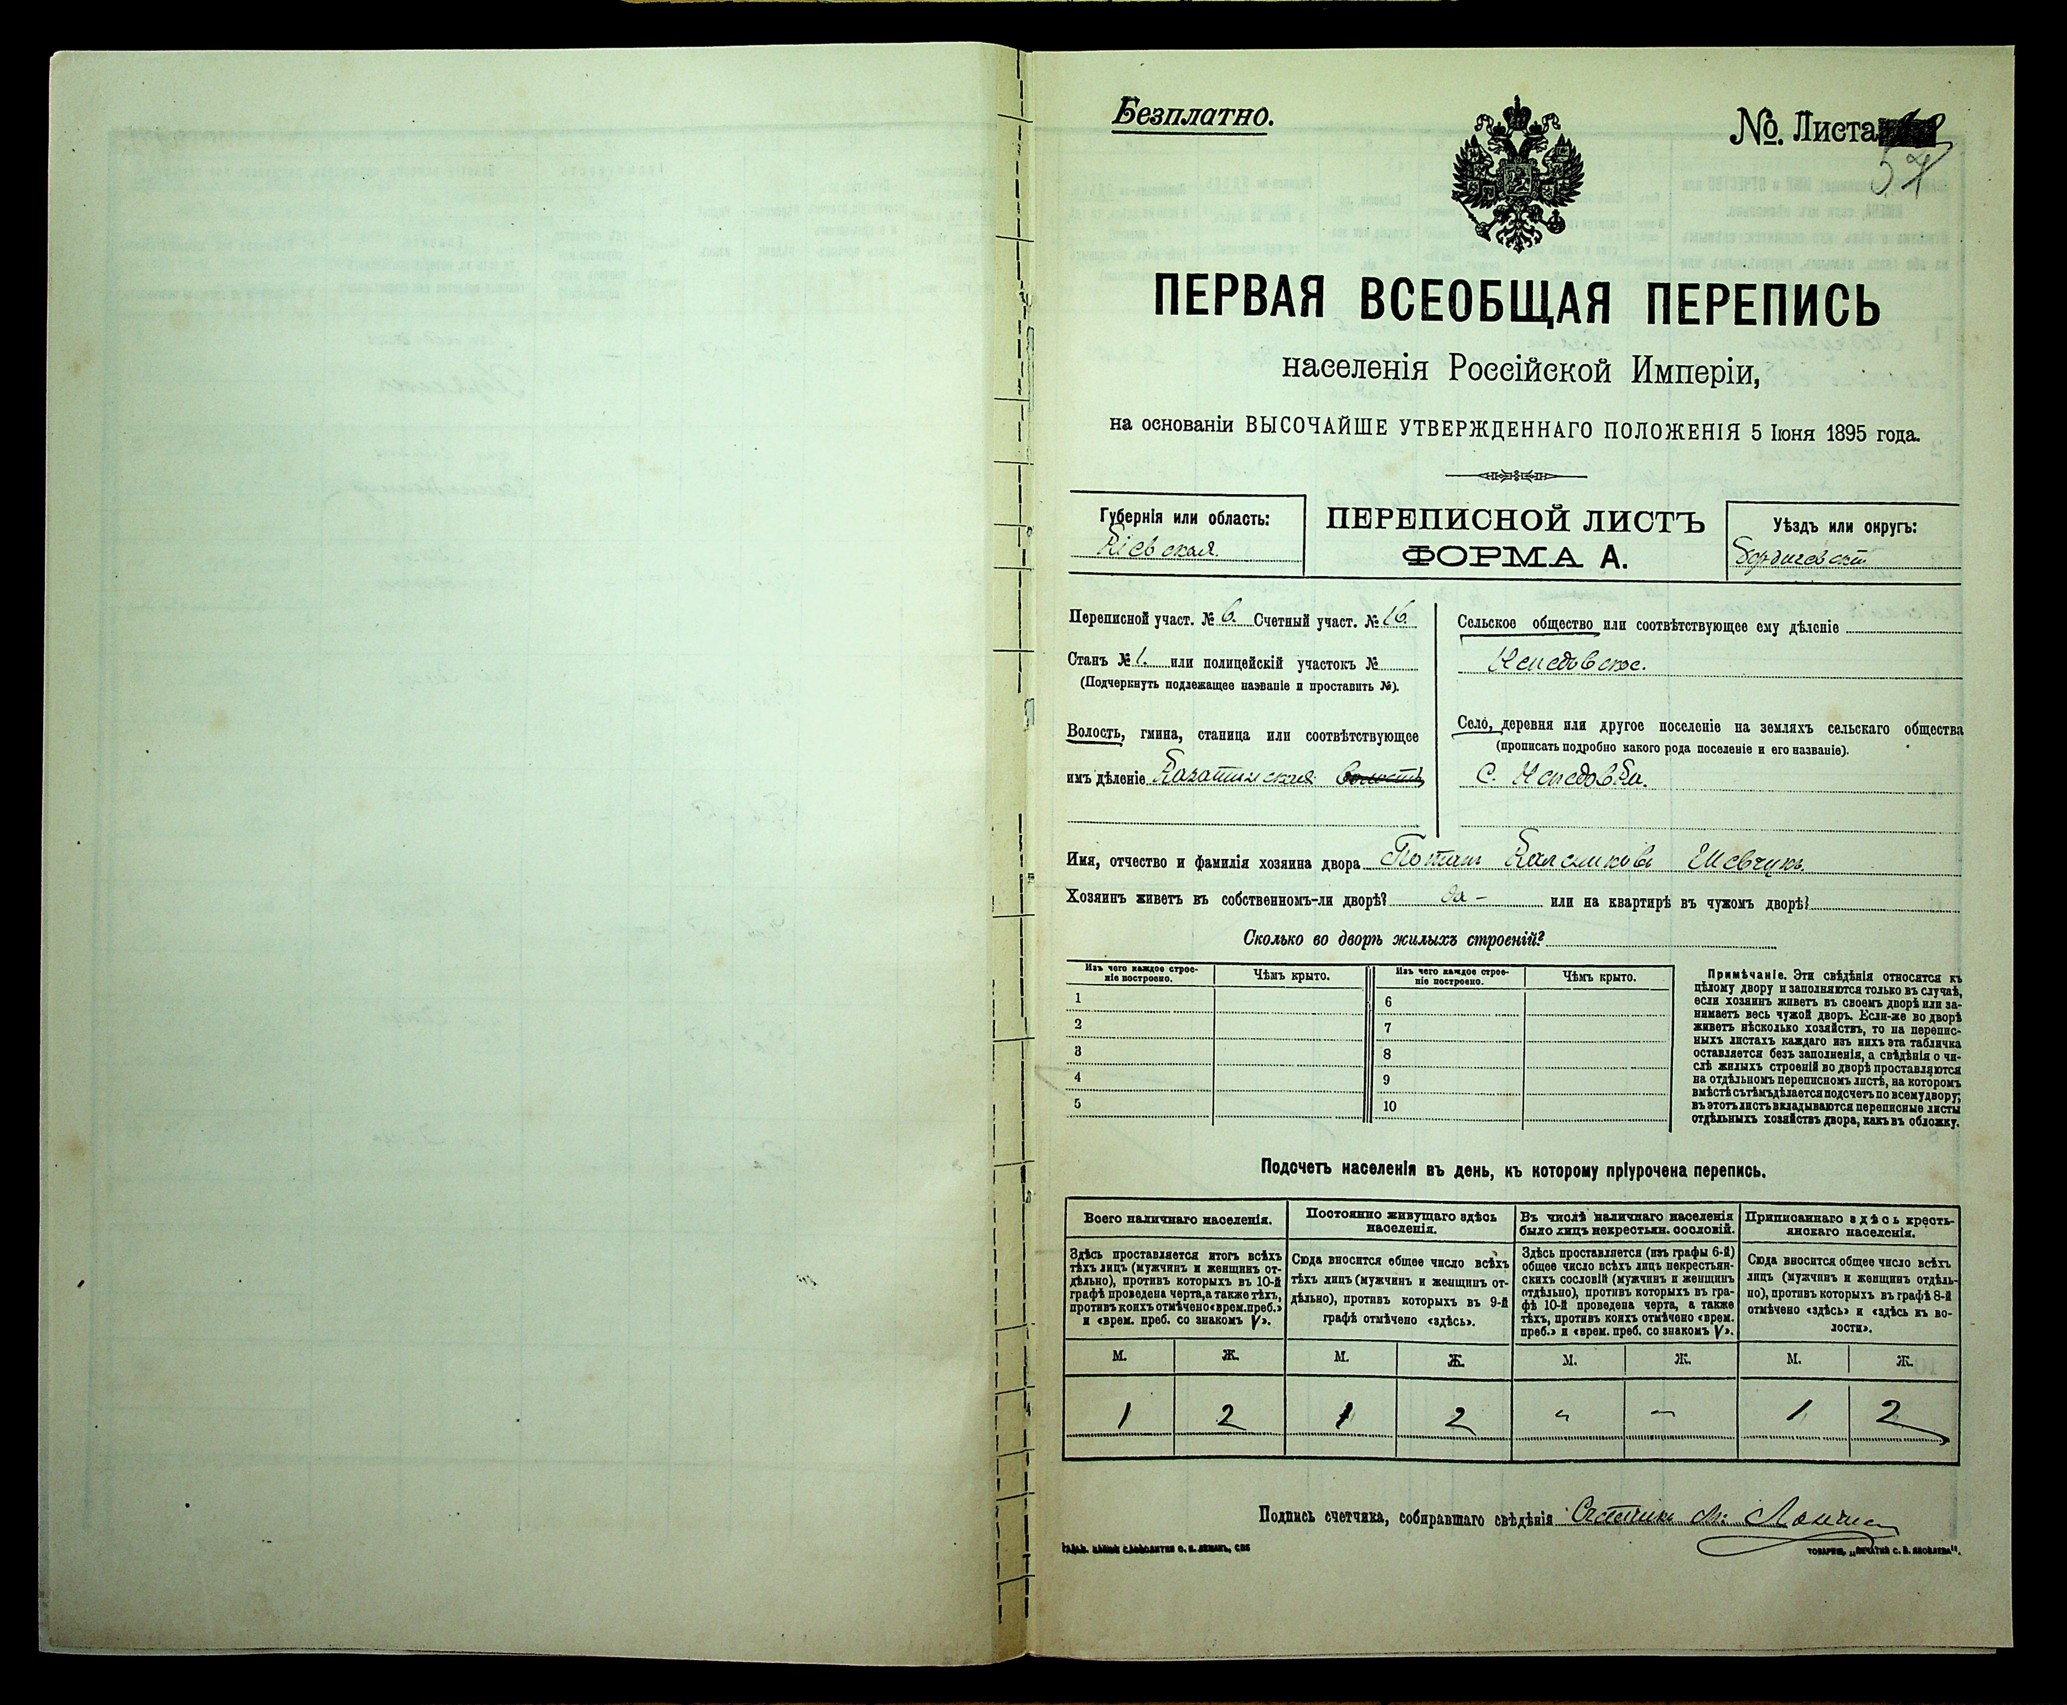 Безплатно.
№. Листа
57
ПЕРВАЯ ВСЕОБЩАЯ ПЕРЕПИСЬ
населенія Россійской Имперіи,
на основаніи ВЫСОЧАЙШЕ УТВЕРЖДЕННАГО ПОЛОЖЕНІЯ 5 Іюня 1895 года.
Губернія или область:
Кіевская.
ПЕРЕПИСНОЙ ЛИСТЪ
ФОРМА А.
Уѣздъ или округъ:
Бердичевскій
Переписной участ. № 6. Счетный участ. № 16.
Станъ № 1. или полицейскій участокъ №
(Подчеркнуть подлежащее названіе и проставить №).
Волость, гмина, станица или соотвѣтствующее
имъ дѣленіе Казатинская волость
Сельское общество или соотвѣтствующее ему дѣленіе
Непедовское.
Село, деревня или другое поселеніе на земляхъ сельскаго общества
(прописать подробно какого рода поселеніе и его названіе).
С. Непедовка.
Имя, отчество и фамилія хозяина двора Потапъ Шевчукъ
Хозяинъ живетъ въ собственномъ-ли дворѣ? да – или на квартирѣ въ чужомъ дворѣ?
Сколько во дворѣ жилыхъ строеній?
Изъ чего каждое строе-
ніе построено.
Чѣмъ крыто.
Изъ чего каждое строе-
ніе построено.
Чѣмъ крыто.
1 6
2 7
3 8
4 9
5 10
Примѣчаніе. Эти свѣдѣнія относятся къ
цѣлому двору и заполняются только въ случаѣ,
если хозяинъ живетъ въ своемъ дворѣ или за-
нимаетъ весь чужой дворъ. Если-же во дворѣ
живетъ нѣсколько хозяйствъ, то на перепис-
ныхъ листахъ каждаго изъ нихъ эта табличка
оставляется безъ заполненія, а свѣдѣнія о чи-
слѣ жилыхъ строеній во дворѣ проставляются
на отдѣльномъ переписномъ листѣ, на которомъ
вмѣстѣ съ тѣмъ дѣлается подсчетъ по всему двору;
въ этотъ листъ вкладываются переписные листы
отдѣльныхъ хозяйствъ двора, какъ въ обложку.
Подсчетъ населенія въ день, къ которому пріурочена перепись.
Всего наличнаго населенія.
Здѣсь проставляется итогъ всѣхъ
тѣхъ лицъ (мужчинъ и женщинъ от-
дѣльно), противъ которыхъ въ 10-й
графѣ проведена черта, а также тѣхъ,
противъ коихъ отмѣчено «врем. преб.»
и «врем. преб. со знакомъ V».
Постоянно живущаго здѣсь
населенія.
Сюда вносится общее число всѣхъ
тѣхъ лицъ (мужчинъ и женщинъ от-
дѣльно), противъ которыхъ въ 9-й
графѣ отмѣчено «здѣсь».
Въ числѣ наличнаго населенія
было лицъ некрестьян. сословій.
Здѣсь проставляется (изъ графы 6-й)
общее число всѣхъ лицъ некрестьян-
скихъ сословій (мужчинъ и женщинъ
отдѣльно), противъ которыхъ въ гра-
фѣ 10-й проведена черта, а также
тѣхъ, противъ коихъ отмѣчено «врем.
преб.» и «врем. преб. со знакомъ V».
Приписаннаго здѣсь кресть-
янскаго населенія.
Сюда вносится общее число всѣхъ
лицъ (мужчинъ и женщинъ отдѣль-
но), противъ которыхъ въ графѣ 8-й
отмѣчено «здѣсь» и «здѣсь къ во-
лости».
М. Ж. М. Ж. М. Ж. М. Ж.
1 2 1 2 " – 1 2
Подпись счетчика, собиравшаго свѣдѣнія Счетчикъ
ТОВАРИЩ. „ПЕЧАТНЯ С. П. ЯКОВЛЕВА".